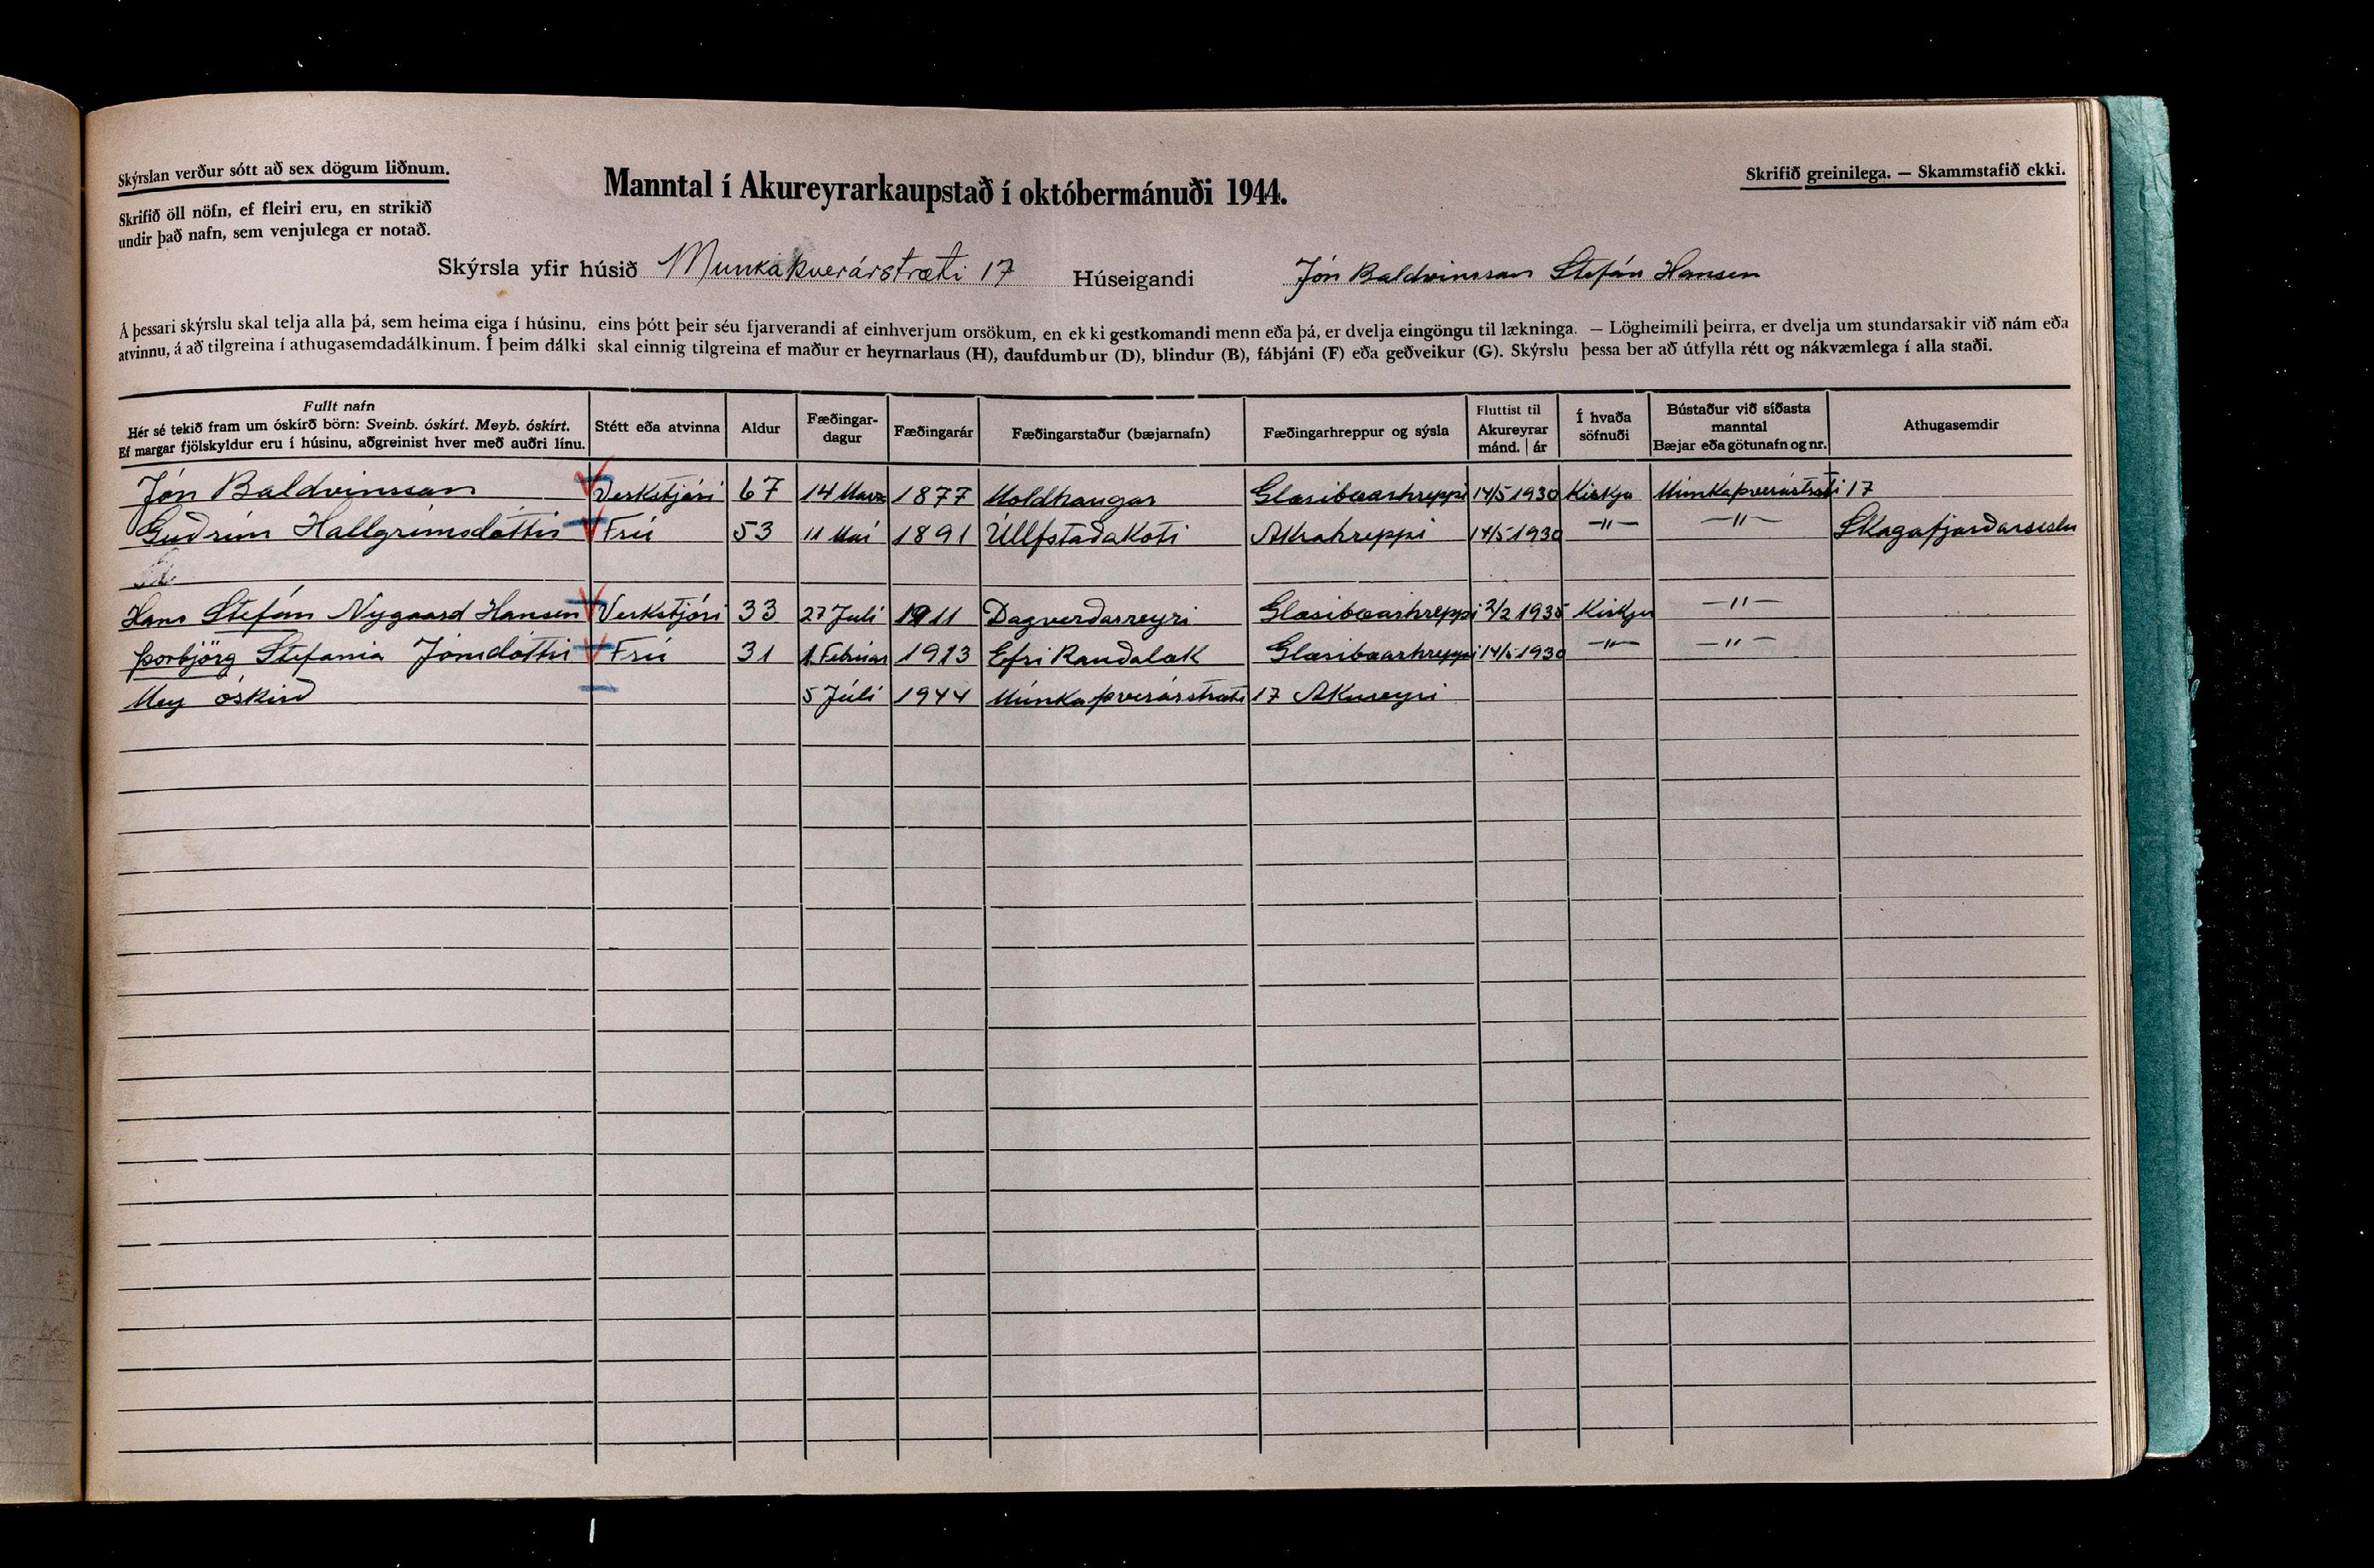 Skýrslan verður sótt að sex dögum liðnum.
Skrifið öll nöfn, ef fleiri eru, en strikið
undir það nafn, sem venjulega er notað.
Manntal í Akureyrarkaupstað í októbermánuði 1944.
Skrifið greinilega. — Skammstafið ekki.
Skýrsla yfir húsið Munkaþverárstræti 17 Húseigandi Jón Baldvinsson Stefán Hansen
Á þessari skýrslu skal telja alla þá, sem heima eiga í húsinu, eins þótt þeir séu fjarverandi af einhverjum orsökum, en ekki gestkomandi menn eða þá, er dvelja eingöngu til lækninga. — Lögheimili þeirra, er dvelja um stundarsakir við nám eða
atvinnu, á að tilgreina í athugasemdadálkinum. Í þeim dálki skal einnig tilgreina ef maður er heyrnarlaus (H), daufdumbur (D), blindur (B), fábjáni (F) eða geðveikur (G). Skýrslu þessa ber að útfylla rétt og nákvæmlega í alla staði.
Fullt nafn
Hér sé tekið fram um óskírð börn: Sveinb. óskírt. Meyb. óskírt.
Ef margar fjölskyldur eru í húsinu, aðgreinist hver með auðri línu.
Stétt eða atvinna
Aldur
Fæðingar-
dagur
Fæðingarár
Fæðingarstaður (bæjarnafn)
Fæðingarhreppur og sýsla
Fluttist til
Akureyrar
mánd. | ár
Í hvaða
söfnuði
Bústaður við síðasta
manntal
Bæjar eða götunafn og nr.
Athugasemdir
Jón Baldvinsson Verkstjóri 67 14 Mars 1877 Moldhaugar Glæsibæarhreppi 14/5 1930 Kirkju Múnkaþverárstræti 17
Guðrún Hallgrímsdóttir Frú 53 11 Maí 1891 Úllfstaðakoti Akrahreppi 14/5 1930 —"— —"— Skagafjarðarsíslu
Hans Stefán Nygaard Hansen Verkstjóri 33 27 Júlí 1911 Dagverðarreyri Glæsibæarhreppi 2/2 1935 Kirkju —"—
Þorbjörg Stefania Jónsdóttir Frú 31 1. Febrúar 1913 Efri Rauðalæk Glæsibæarhreppi 14/5 1930 —"— —"—
Mey óskírð 5 Júlí 1944 Múnkaþverárstræti 17 Akureyri